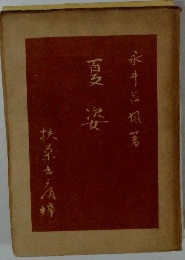 永井荷風著
夏姿
扶桑書房梓